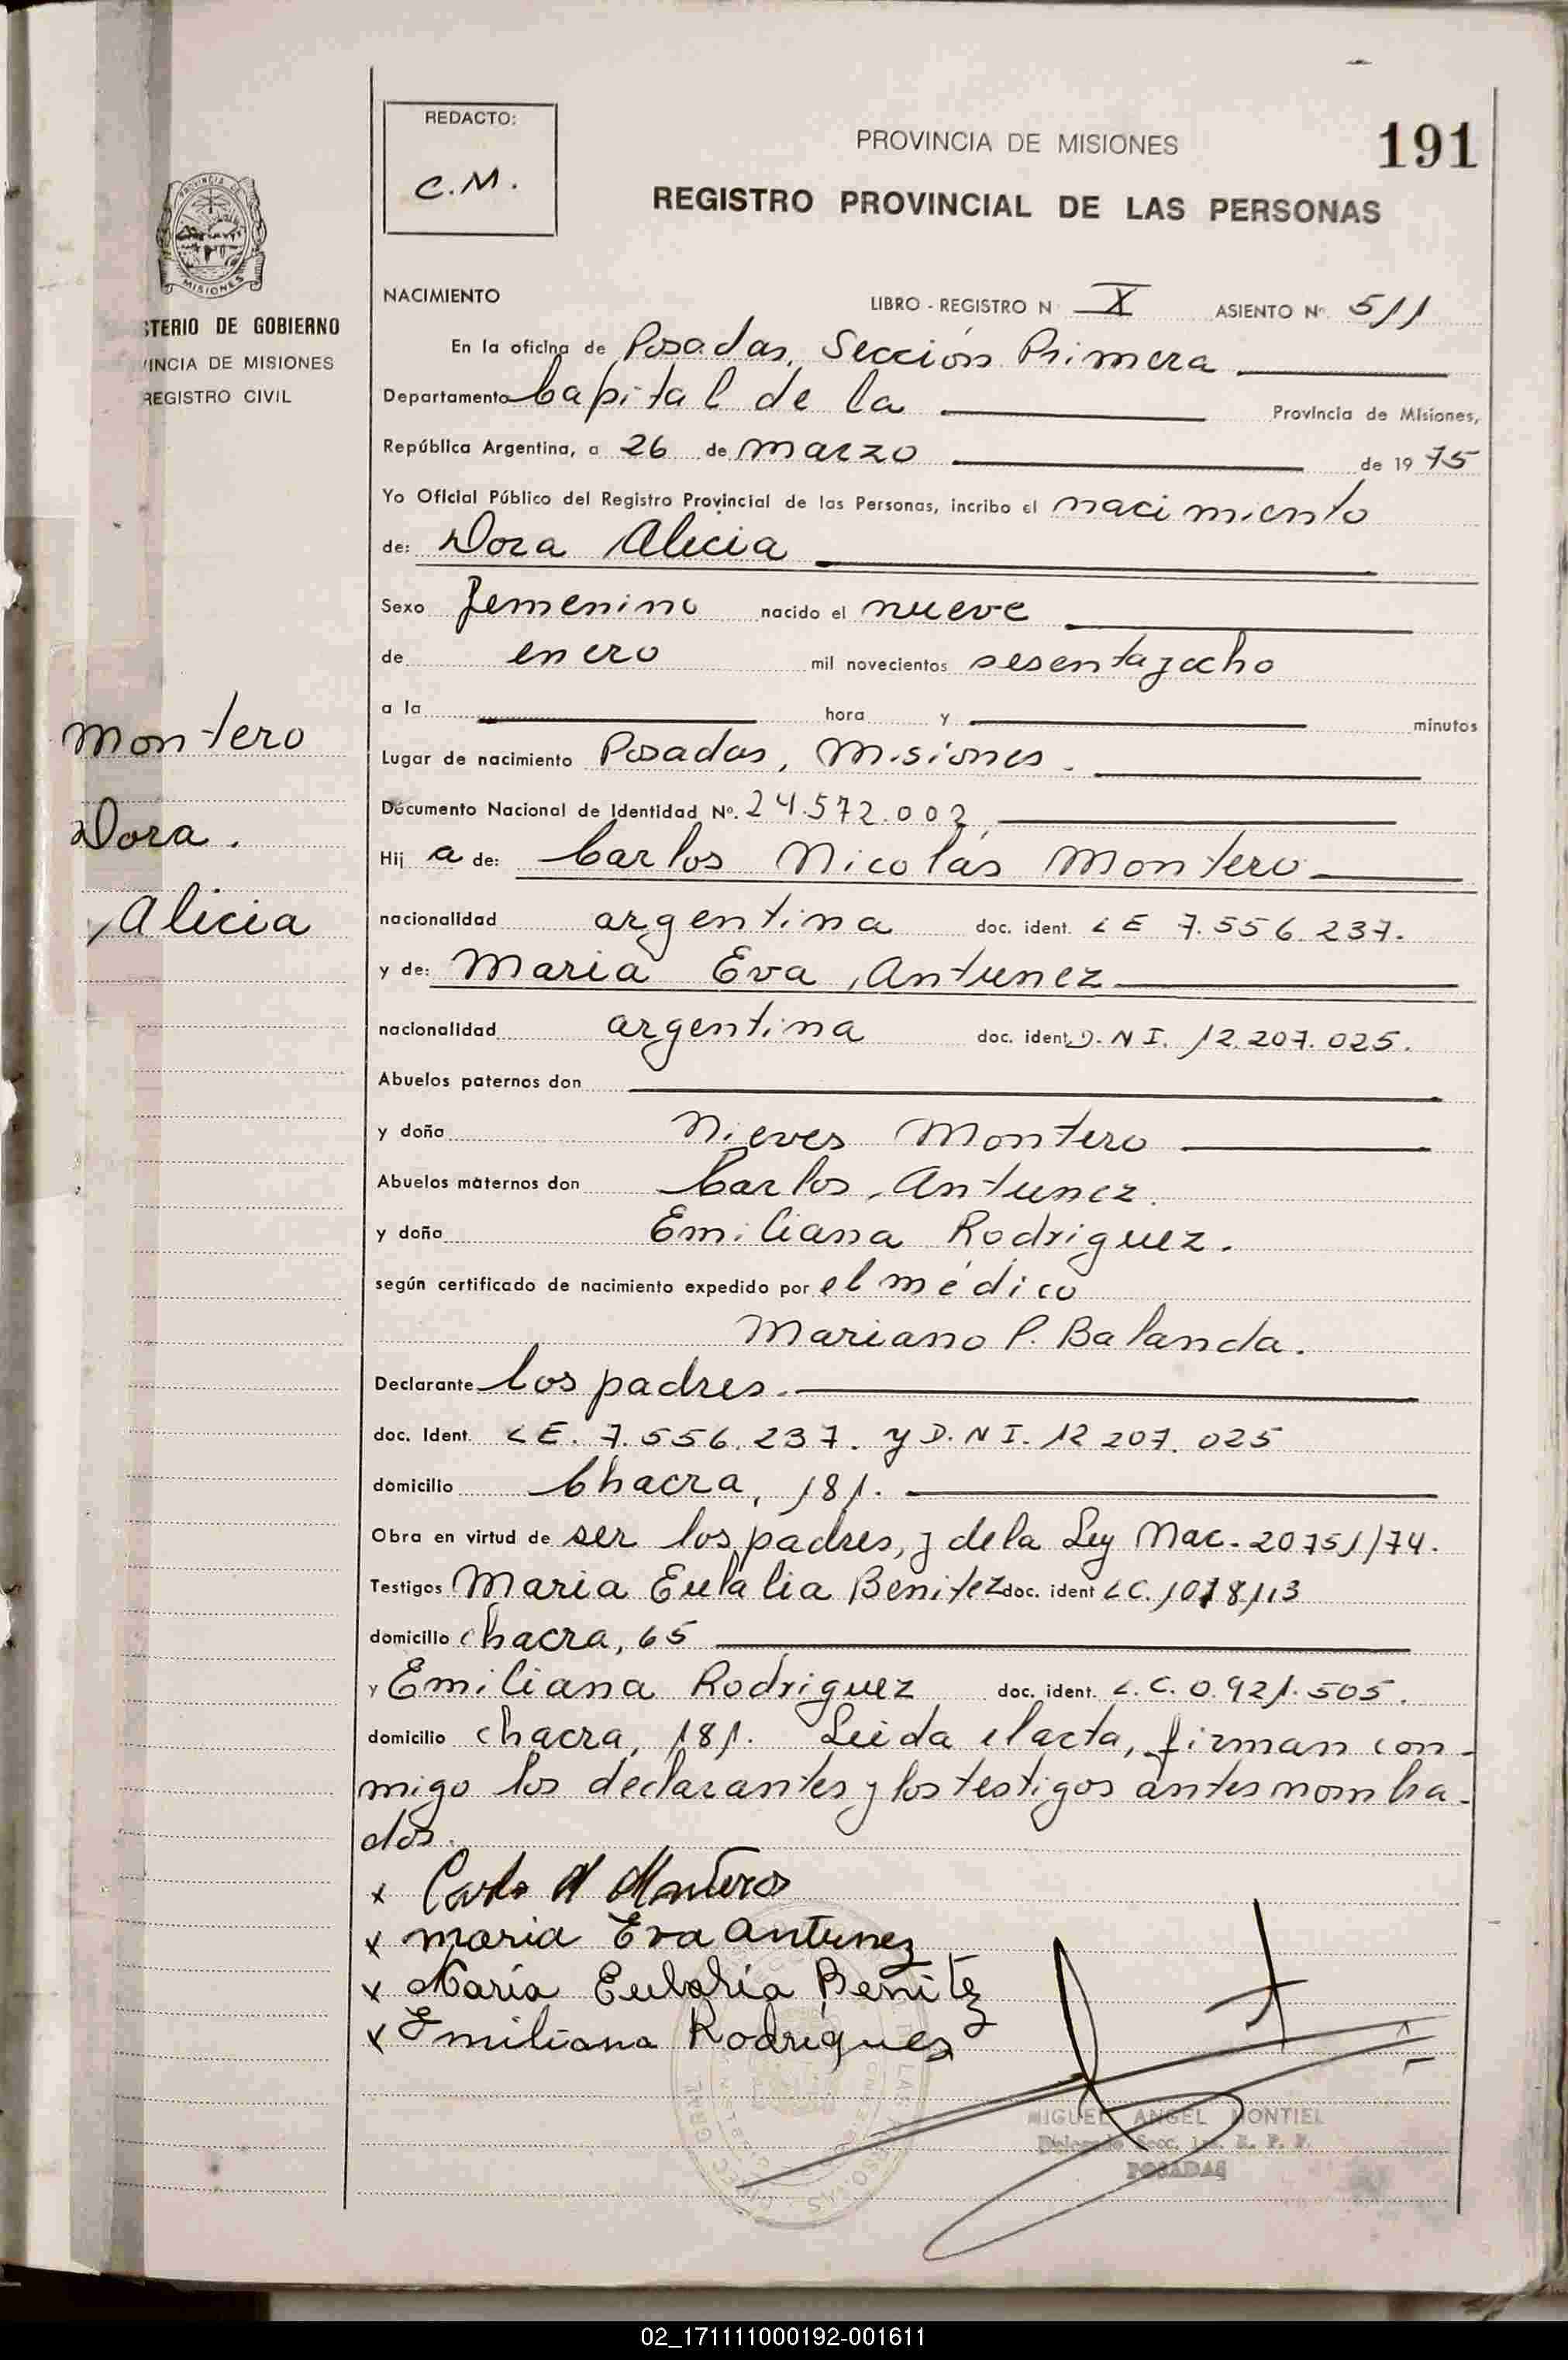 191
REDACTO:
C.M.
PROVINCIA DE MISIONES
REGISTRO PROVINCIAL DE LAS PERSONAS
PROVINCIA DE
MISIONES
STERIO DE GOBIERNO
VINCIA DE MISIONES
REGISTRO CIVIL
NACIMIENTO LIBRO - REGISTRO N X ASIENTO Nº 511
En la oficina de Posadas, Sección Primera
Departamento Capital de la Provincia de Misiones,
República Argentina, a 26 de marzo de 19 75
Yo Oficial Público del Registro Provincial de las Personas, incribo el nacimiento
de: Dora Alicia
Sexo femenino nacido el nueve
de enero mil novecientos sesentayocho
a la hora y minutos
Montero
Dora.
Alicia
Lugar de nacimiento Posadas, Misiones.
Documento Nacional de Identidad Nº. 24.572.002,
Hij a de: Carlos Nicolás Montero
nacionalidad argentina doc. ident. LE 7.556.237.
y de: Maria Eva Antunez
nacionalidad argentina doc. ident. D.N I. 12.207.025.
Abuelos paternos don
y doña Nieves Montero
Abuelos maternos don Carlos Antunez.
y doña Emiliana Rodriguez.
según certificado de nacimiento expedido por el médico
Mariano P. Balanda.
Declarante los padres.
doc. Ident. LE. 7.556.237. y D.N I. 12 207.025
domicilio Chacra, 181.
Obra en virtud de ser los padres, y dela Ley Nac. 20751/74.
Testigos Maria Eulalia Benitez doc. ident LC. 1078113
domicilio chacra, 65
y Emiliana Rodriguez doc. ident. L.C. 0.921.505.
domicilio chacra, 181. Leida el acta, firman con-
migo los declarantes y los testigos antes nombra-
dos.
x Carlo N Monteros
x maria Eva Antunez
x María Eulalia Benitez
x Emiliana Rodriguez
MIGUEL ANGEL MONTIEL
Delegado Secc. 1ra. R. P. P.
POSADAS
02_171111000192-001611